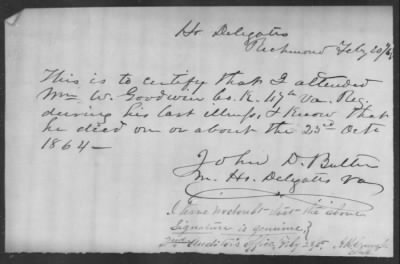 Ho Delegates
Richmond Feby 20/65
This is to certify that I attended
Wm W. Goodwin Co. K. 47th Va. Reg.
during his last illness, & Know that
he died on or about the 23rd Octo
1864 —
John D. Butler
M. Ho. Delegates Va
I have no doubt that the above
signature is genuine,
2nd Auditor's office, Feby